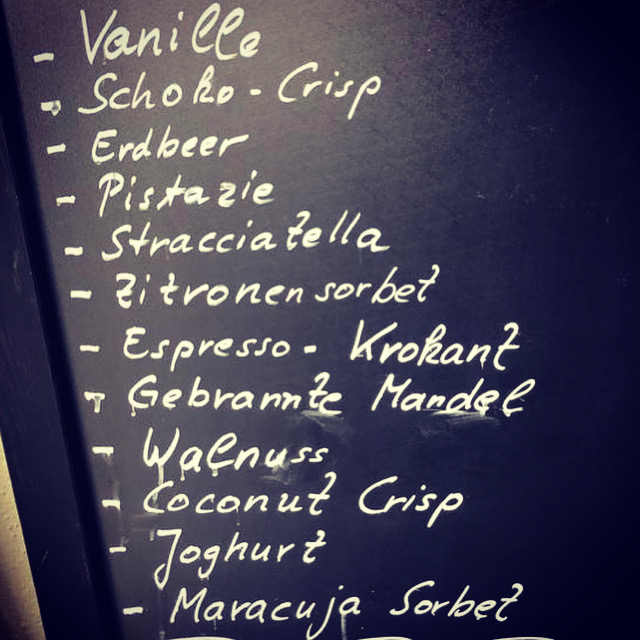 - Vanille
- Schoko - Crisp
- Erdbeer
- Pistazie
- Stracciatella
- Zitronensorbet
- Espresso - Krokant
- Gebrannte Mandel
- Walnuss
- Coconut Crisp
- Joghurt
- Maracuja Sorbet